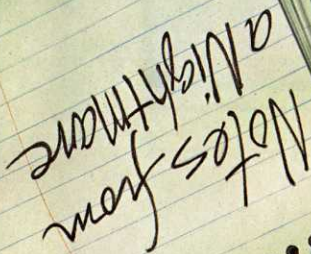 Notes from
a Nightmare